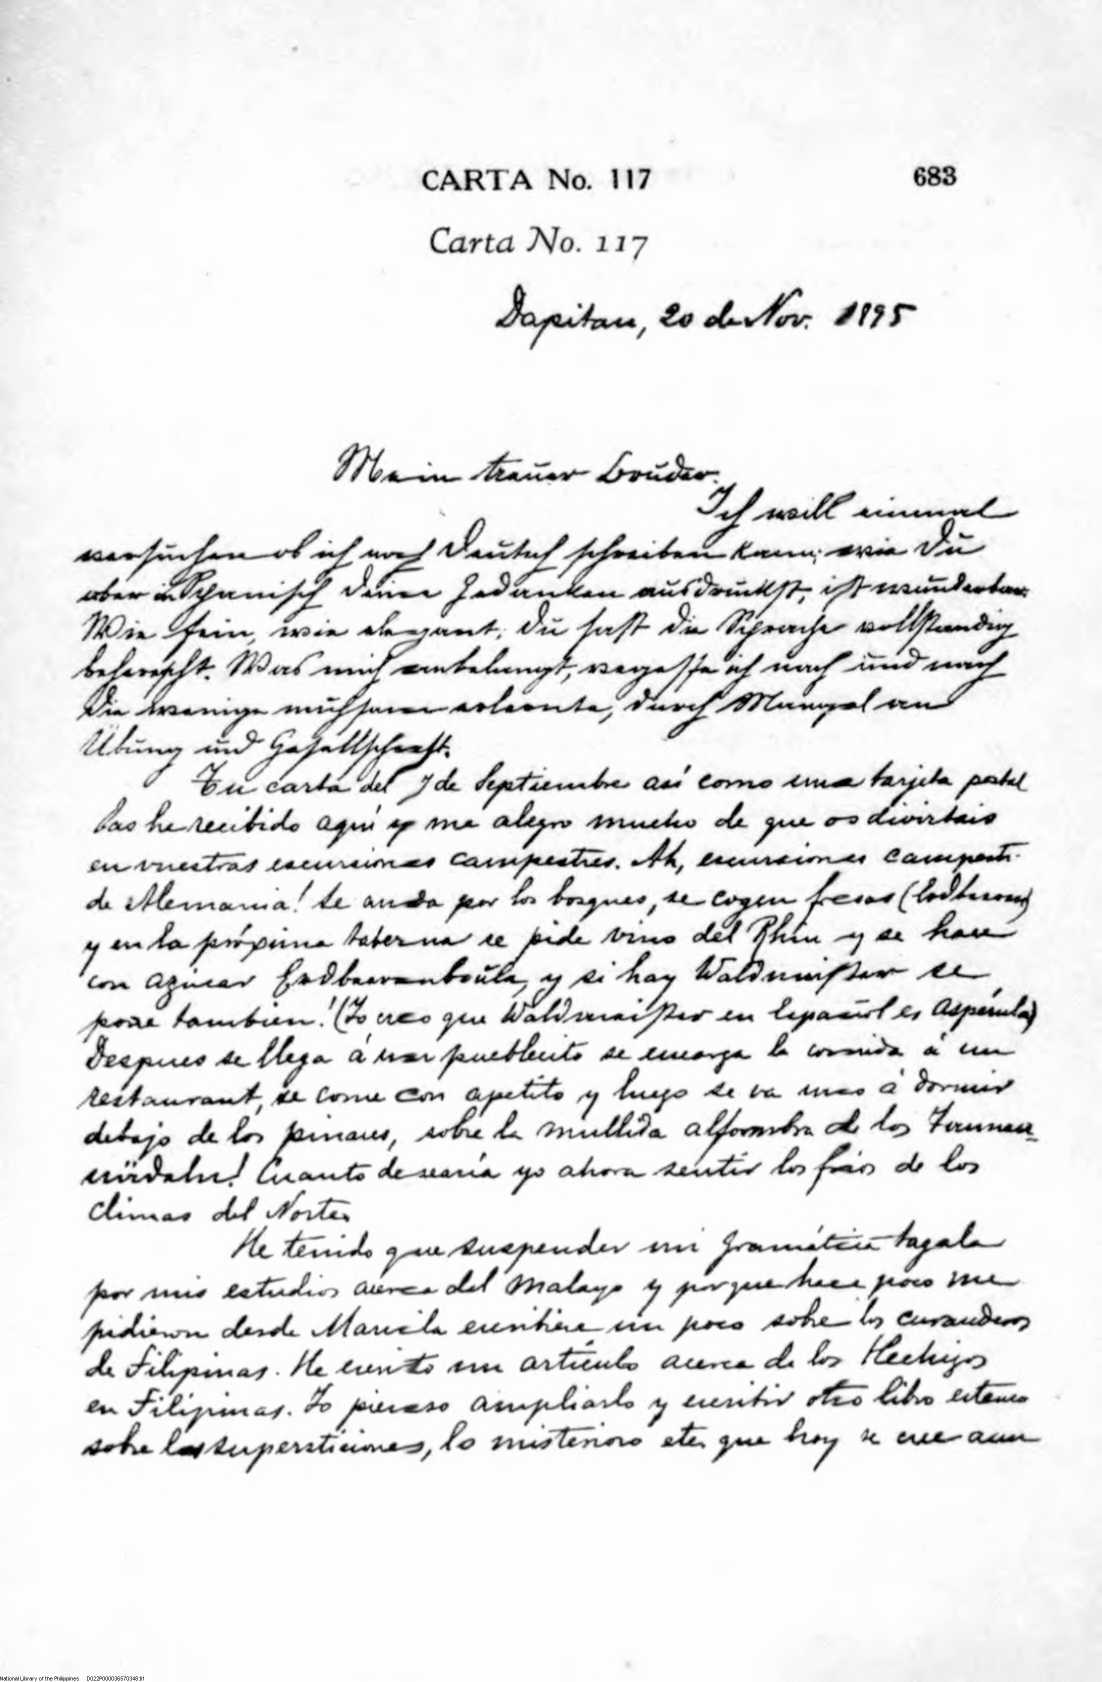 CARTA No. 117 683
Carta No. 117
Dapitan, 20 de Nov. 1895
Mein treuer Bruder.
Ich will einmal
versuchen ob ich noch Deutsch schreiben kann; wie Du
aber in Spanisch Deine Gedanken ausdrückst, ist wunderbar.
Wie fein, wie elegant; Du hast die Sprache vollständig
beherrscht. Was mich anbelangt, vergesse ich nach und nach
die wenige mühsam erlernte, durch Mangel an
Übung und Gesellschaft.
Tu carta del 7 de Septiembre así como una tarjeta postal
las he recibido aquí y me alegro mucho de que os divirtais
en vuestras escursiones campestres. Ah, escursiones campest.
de Alemania! Se anda por los bosques, se cogen fresas (Erdbeeren)
y en la próxima taberna se pide vino del Rhin y se hace
con azúcar Erdbeerenboule, y si hay Waldmeister se
pone tambien! (Yo creo que Waldmeister en Español es Aspérula)
Despues se llega á un pueblecito se encarga la comida á un
restaurant, se come con apetito y luego se va uno á dormir
debajo de los pinares, sobre la mullida alfombra de los Tannen-
nädeln! Cuanto desearía yo ahora sentir los fríos de los
climas del Norte.
He tenido que suspender mi gramática tagala
por mis estudios acerca del Malayo y porque hace poco me
pidieron desde Manila escribiese un poco sobre los curanderos
de Filipinas. He escrito un artículo acerca de los Hechizos
en Filipinas. Yo pienso ampliarlo y escribir otro libro estenso
sobre las supersticiones, lo misterioso etc. que hoy se cree aun
National Library of the Philippines